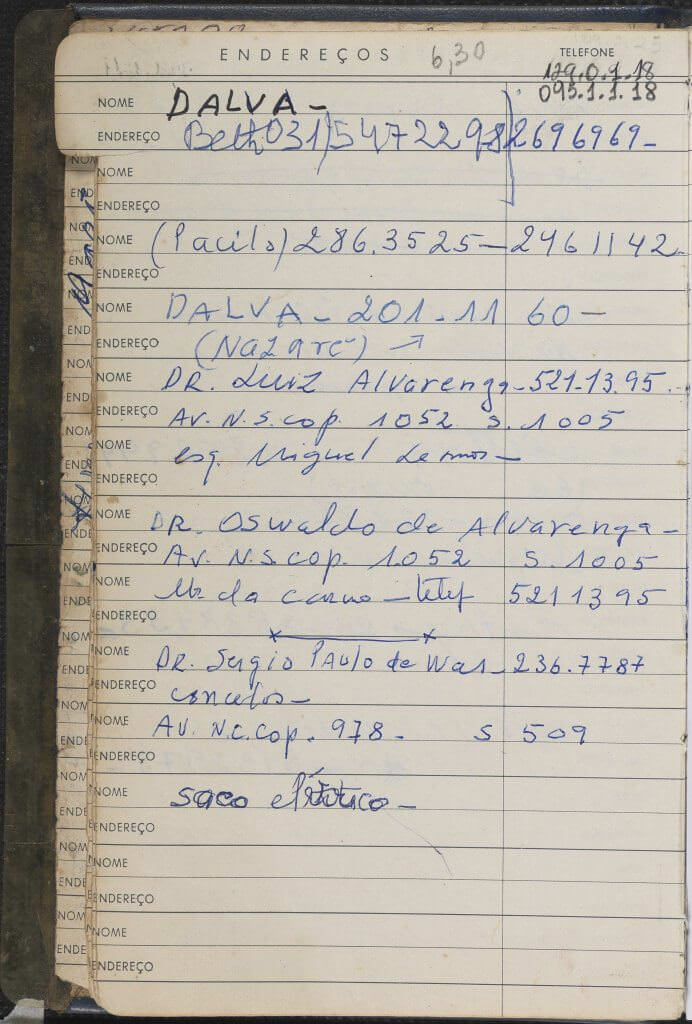 ENDEREÇOS 6,30 TELEFONE
129.0.1.18
NOME DALVA - 095.1.1.18
ENDEREÇO Beth 031/5472298 2696969-
NOME
ENDEREÇO
NOME (Pacilo) 286.3525 - 2461142
ENDEREÇO
NOME DALVA - 201-11 60 -
ENDEREÇO (Nazaré)
NOME DR. Luiz Alvarenga - 521-13.95.
ENDEREÇO Av. N.S. cop. 1052 S. 1005
NOME esq. Miguel Lemos -
ENDEREÇO
NOME DR. Oswaldo de Alvarenga -
ENDEREÇO Av. N.S. cop. 1052 S. 1005
NOME da telef 521 1395
ENDEREÇO
NOME DR. Sergio Paulo de Was - 236.7787
ENDEREÇO concelos -
NOME Av. N.C. Cop. 978 - S 509
ENDEREÇO
NOME saco elétrico -
ENDEREÇO
NOME
ENDEREÇO
NOME
ENDEREÇO